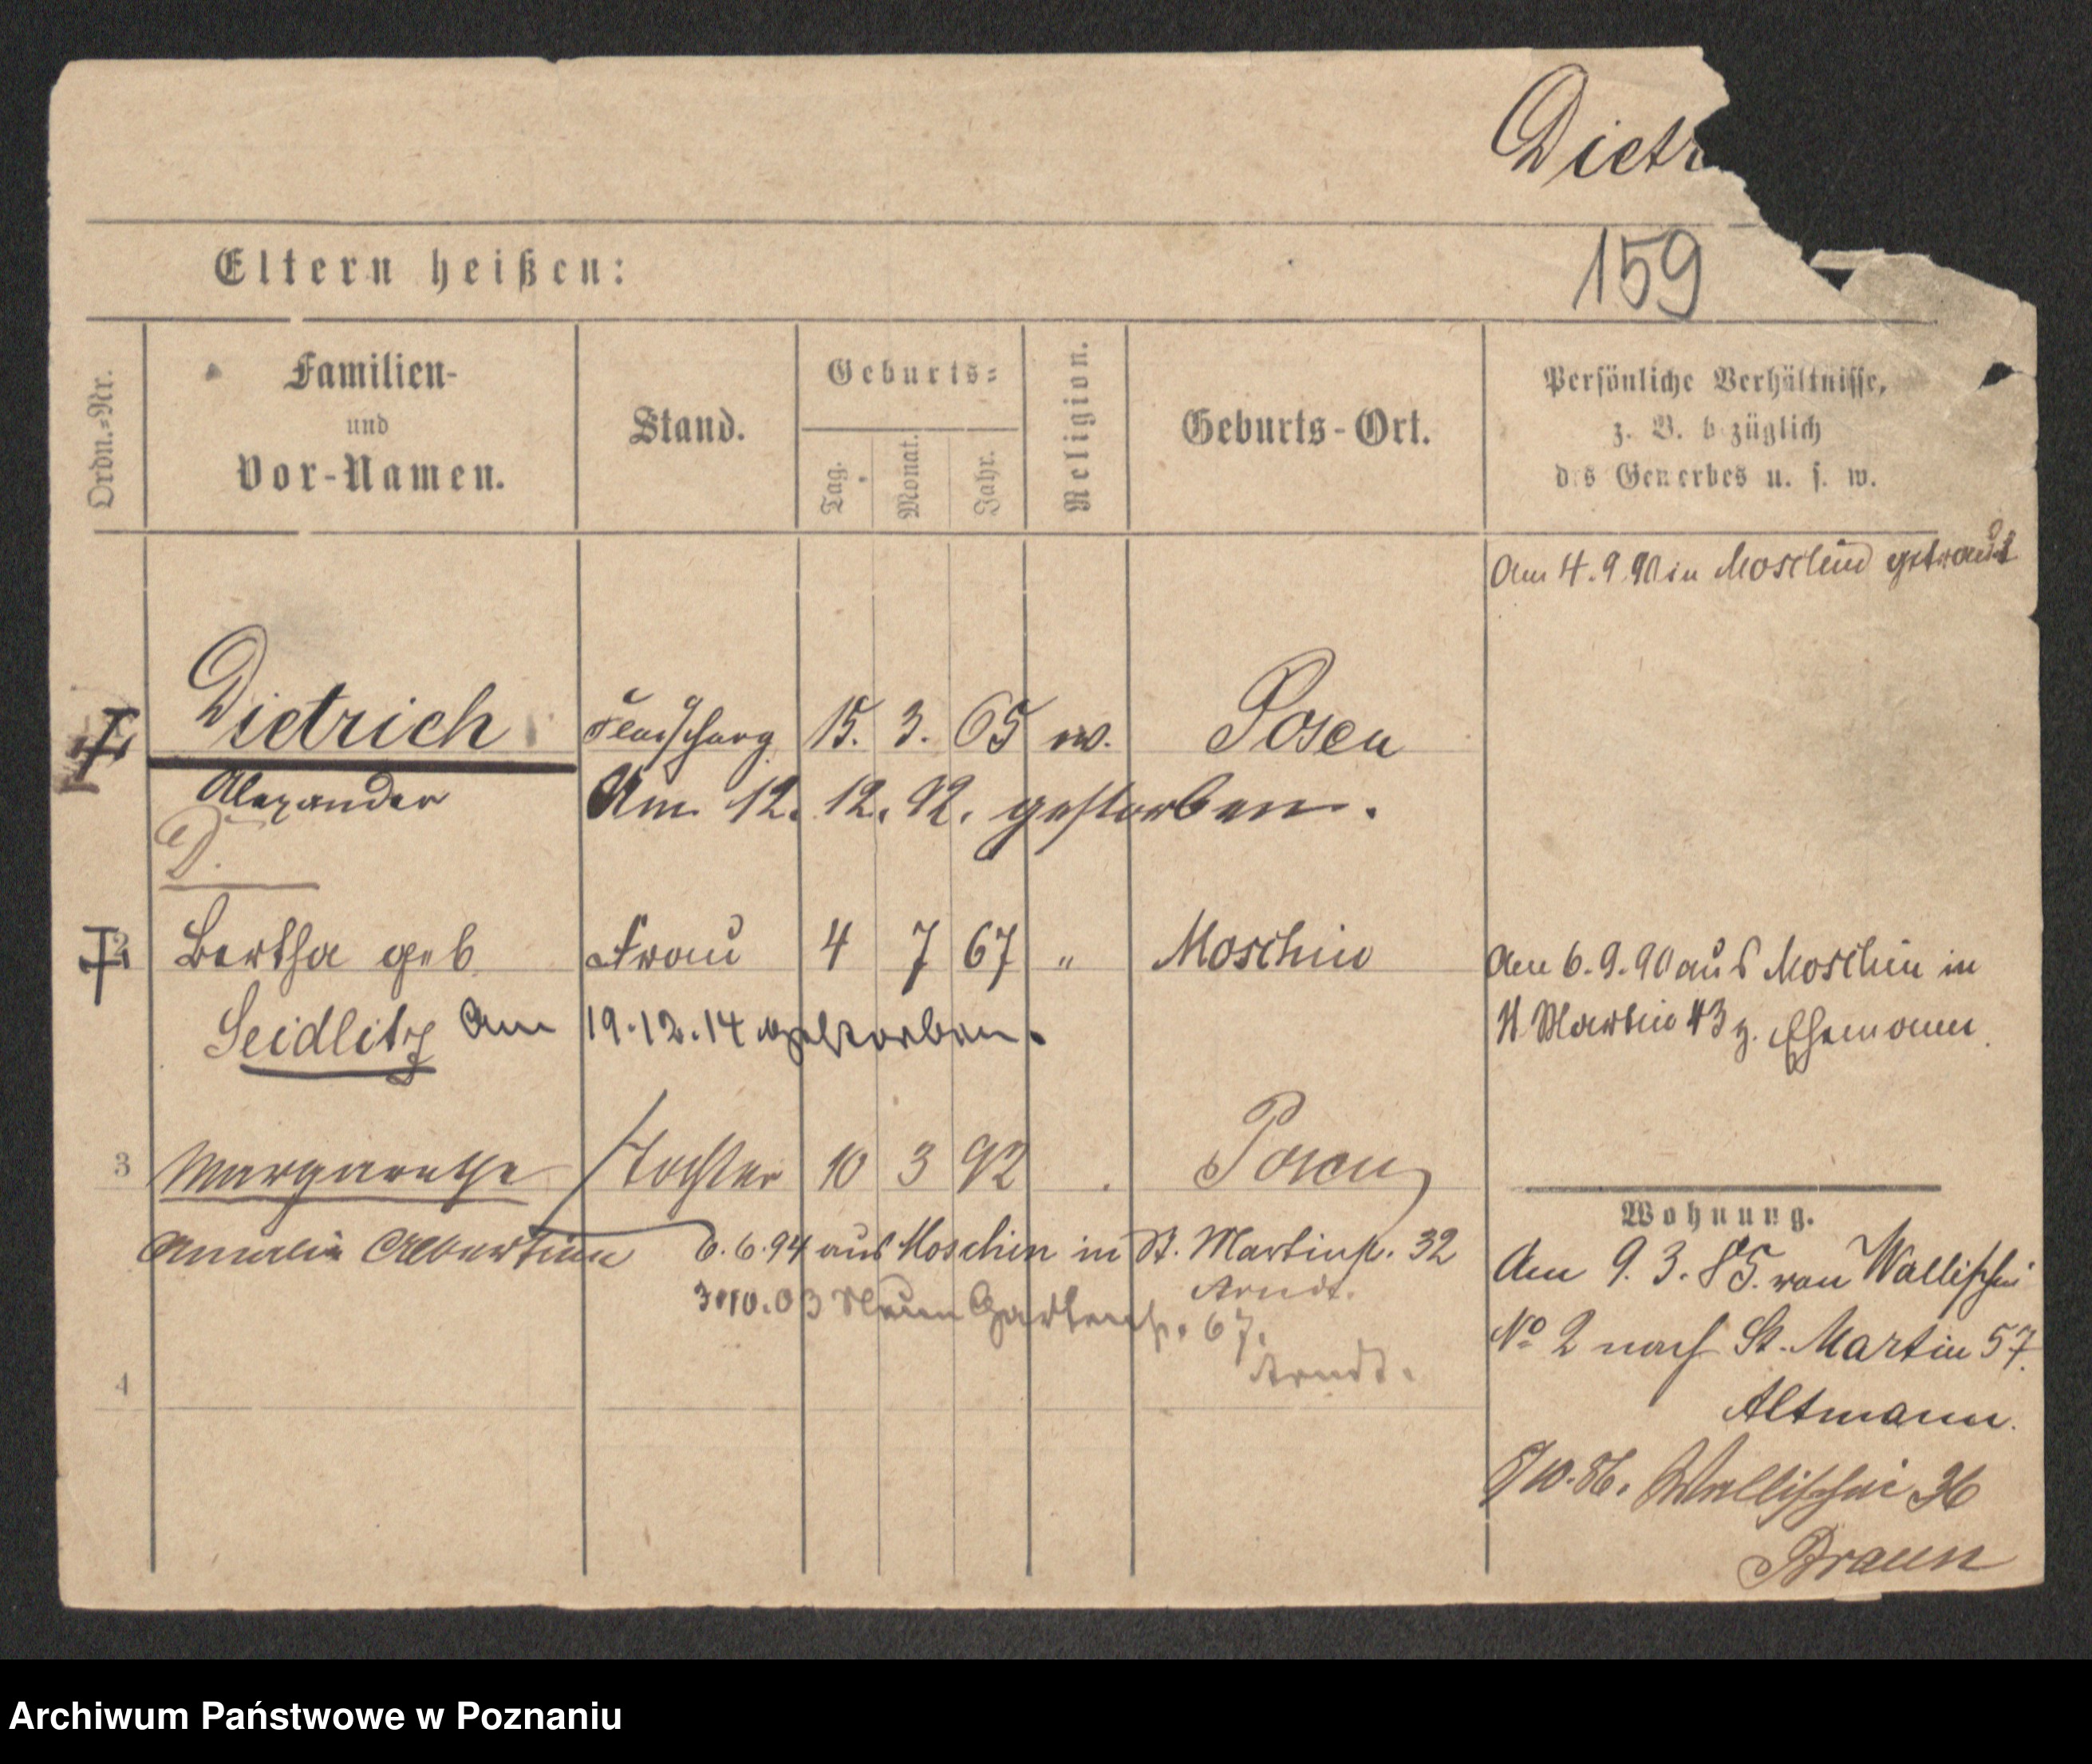 Dietr
159
Eltern heißen:
Ordn.-Nr.
Familien-
und
Vor-Namen.
Stand.
Geburts-
Tag.
Monat.
Jahr.
Religion.
Geburts-Ort.
Persönliche Verhältnisse,
z. B. b züglich
d s Gewerbes u. s. w.
Am 4.9.90 in Moschin getraut
Dietrich 15. 3. 65 Posen
Alexander Am 12. 12. 92. gestorben.
D.
2 Bertha geb Frau 4 7 67 " Moschin
Am 6.9.90 aus Moschin in
Seidlitz Am 19.12.14 gestorben.
Martin 43 z. Ehemann
3 Margarethe Tochter 10 3 92 Posen
Wohnung.
Amalie Albertine 6.6.94 aus Moschin in St. Martinstr. 32
Arndt.
3.10.03 Gartenstr. 67.
Arndt.
4
Am 9.3.85. von Wallischei
No 2 nach St. Martin 57.
Altmann.
10.86. Wallischei 36
Braun
Archiwum Państwowe w Poznaniu